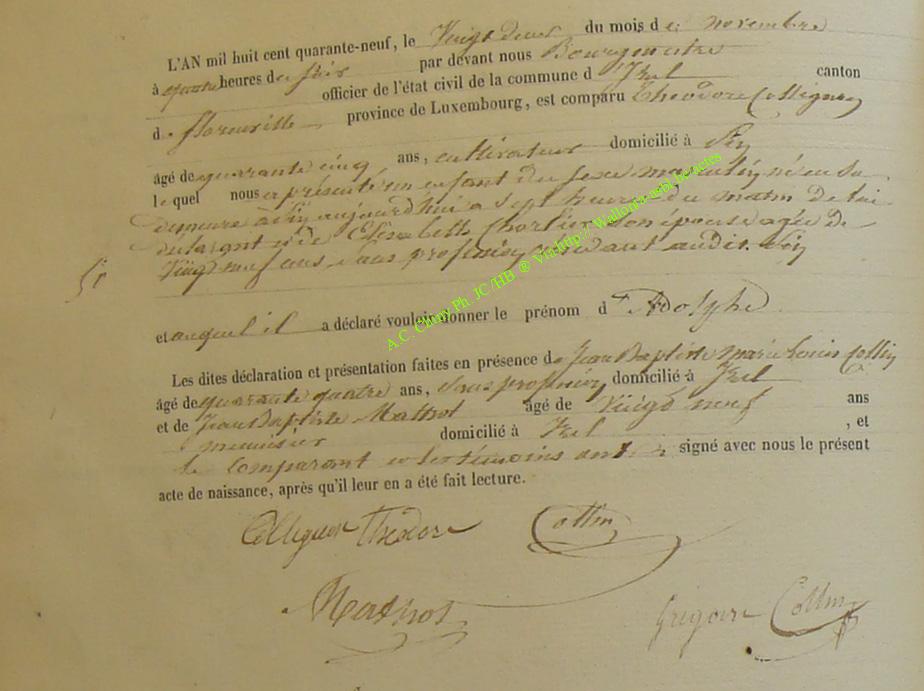 L'AN mil huit cent quarante-neuf, le Vingt deux du mois de novembre
à quatre heures de soir par devant nous Bourgmestre
officier de l'état civil de la commune d Izel canton
d. florenville province de Luxembourg, est comparu Theodore Collignon
âgé de quarante cinq ans, cultivateur domicilié à Pin
lequel nous a présenté un enfant du sexe masculin né en sa
demeure à Pin aujourd'hui a sept heures du matin de lui
declarant et de Elisabeth son épouse agée de
Vingt neuf ans, sans profession audit Pin
et auquel il a déclaré vouloir donner le prénom d'Adolphe
Les dites déclaration et présentation faites en présence de Jean Baptiste Marie Louis Collin
âgé de quarante quatre ans, sans profession domicilié à Izel
et de Jean Baptiste Mathot âgé de Vingt neuf ans
menuisier domicilié à Izel , et
le Comparant et les témoins ont signé avec nous le présent
acte de naissance, après qu'il leur en a été fait lecture.
Collignon Théodore Collin
Mathot Grégoire Collin
A.C. Chiny Ph. JC/HB @ Via http://Wallonia-asbl.be/actes